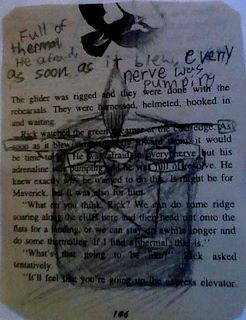 Full of
thermal,
He afraid,
as soon as it blew, every
nerve was
pumping
The glider was rigged and they were done with the
rehearsals. They were harnessed, helmeted, hooked in
and waiting.
Rick watched the green streamer at the cliff edge. As
soon as it blew toward them it would
be time to He was afraid every nerve but his
adrenaline pumping and he was full of resolve. He
knew exactly why he wanted to do this. It might be for
Maverick, but it was also for him.
"What do you think, Rick? We can do some ridge
soaring along the cliff here and then head out onto the
flats for a landing, or we can stay up awhile longer and
do some thermaling. If I find a thermal, that is."
"What's that going to be like?" Rick asked
tentatively.
"It'll feel like you're going up the express elevator
146